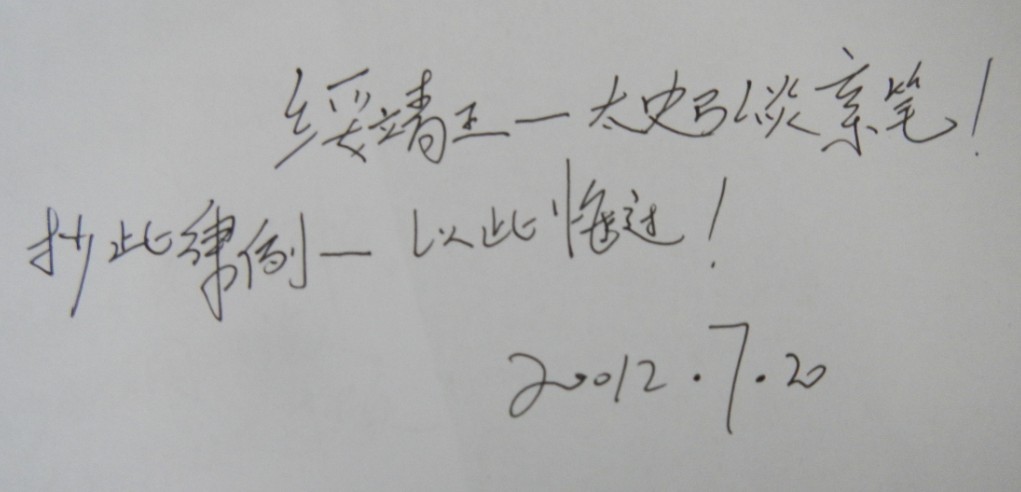 绥靖王—太史弘炎亲笔！
抄此律例—以此悔过！
2012.7.20